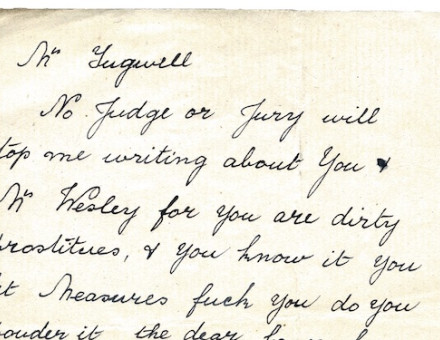 Mrs Tugwell
No Judge or Jury will
top me writing about You &
Mrs Wesley for You are dirty
rostitues, & You know it You
Measures fuck You do You
it the dear